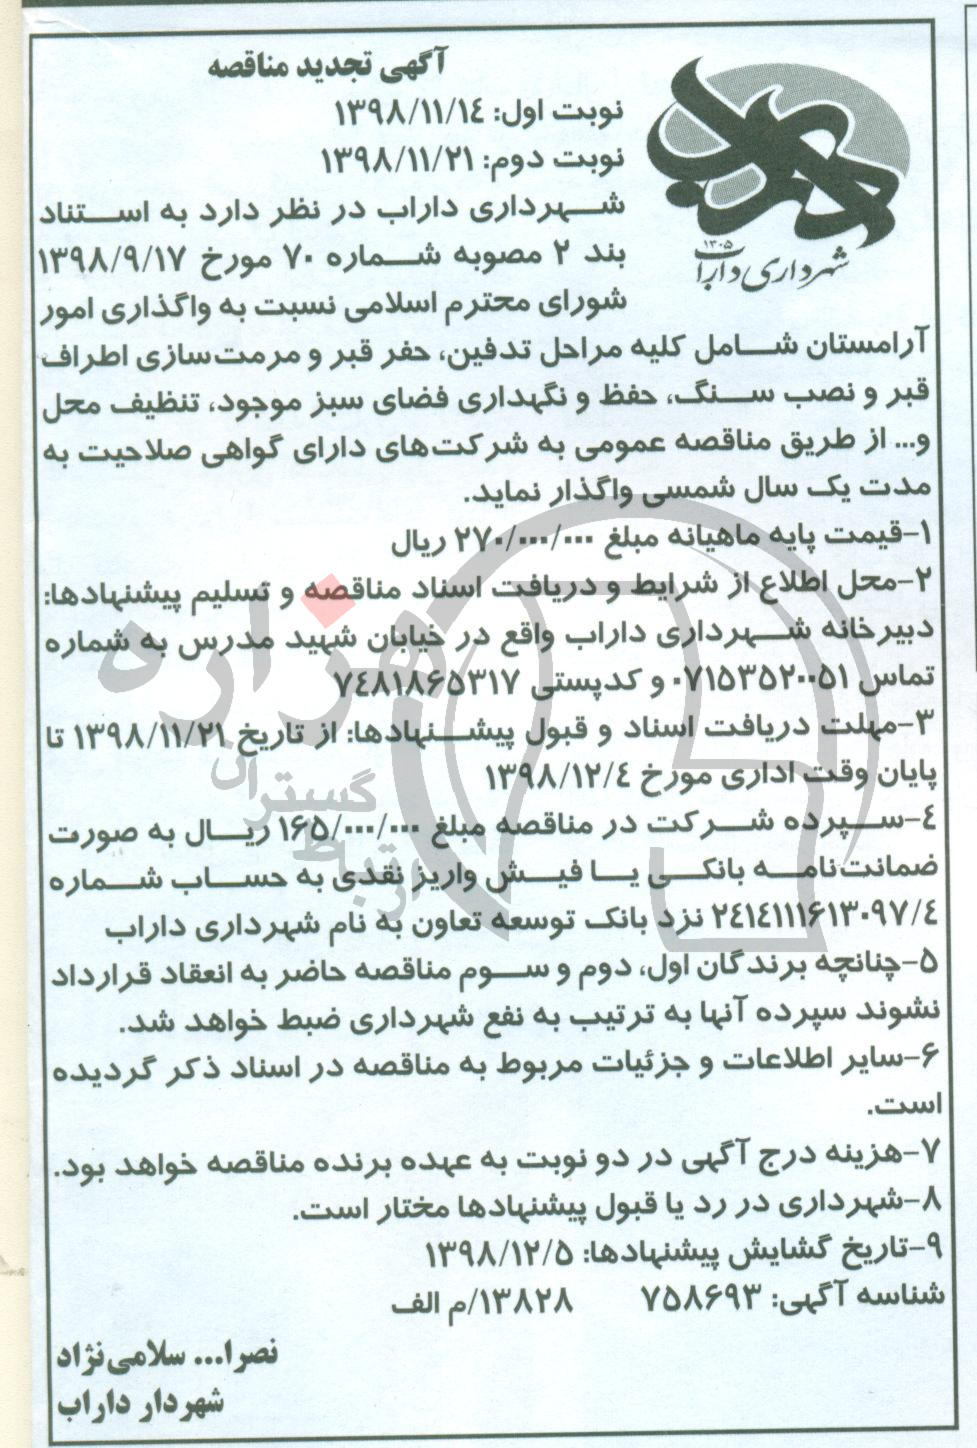 آگهی تجدید مناقصه
نوبت اول: ۱۳۹۸/۱۱/۱۴
نوبت دوم: ۱۳۹۸/۱۱/۲۱
۱۳۰۵
شهرداری داراب
شهرداری داراب در نظر دارد به استناد
بند ۲ مصوبه شماره ۷۰ مورخ ۱۳۹۸/۹/۱۷
شورای محترم اسلامی نسبت به واگذاری امور
آرامستان شامل کلیه مراحل تدفین، حفر قبر و مرمت‌سازی اطراف
قبر و نصب سنگ، حفظ و نگهداری فضای سبز موجود، تنظیف محل
و... از طریق مناقصه عمومی به شرکت‌های دارای گواهی صلاحیت به
مدت یک سال شمسی واگذار نماید.
۱-قیمت پایه ماهیانه مبلغ ۲۷۰/۰۰۰/۰۰۰ ریال
۲-محل اطلاع از شرایط و دریافت اسناد مناقصه و تسلیم پیشنهادها:
دبیرخانه شهرداری داراب واقع در خیابان شهید مدرس به شماره
تماس ۰۷۱۵۳۵۲۰۰۵۱ و کدپستی ۷۴۸۱۸۶۵۳۱۷
۳-مهلت دریافت اسناد و قبول پیشنهادها: از تاریخ ۱۳۹۸/۱۱/۲۱ تا
پایان وقت اداری مورخ ۱۳۹۸/۱۲/۴
۴-سپرده شرکت در مناقصه مبلغ ۱۶۵/۰۰۰/۰۰۰ ریال به صورت
ضمانت‌نامه بانکی یا فیش واریز نقدی به حساب شماره
۲۴۱۴۱۱۱۶۱۳۰۹۷/۴ نزد بانک توسعه تعاون به نام شهرداری داراب
۵-چنانچه برندگان اول، دوم و سوم مناقصه حاضر به انعقاد قرارداد
نشوند سپرده آنها به ترتیب به نفع شهرداری ضبط خواهد شد.
۶-سایر اطلاعات و جزئیات مربوط به مناقصه در اسناد ذکر گردیده
است.
۷-هزینه درج آگهی در دو نوبت به عهده برنده مناقصه خواهد بود.
۸-شهرداری در رد یا قبول پیشنهادها مختار است.
۹-تاریخ گشایش پیشنهادها: ۱۳۹۸/۱۲/۵
شناسه آگهی: ۷۵۸۶۹۳ ۱۳۸۲۸/م الف
نصرا... سلامی‌نژاد
شهردار داراب
هزاره
گستران
ارتباط